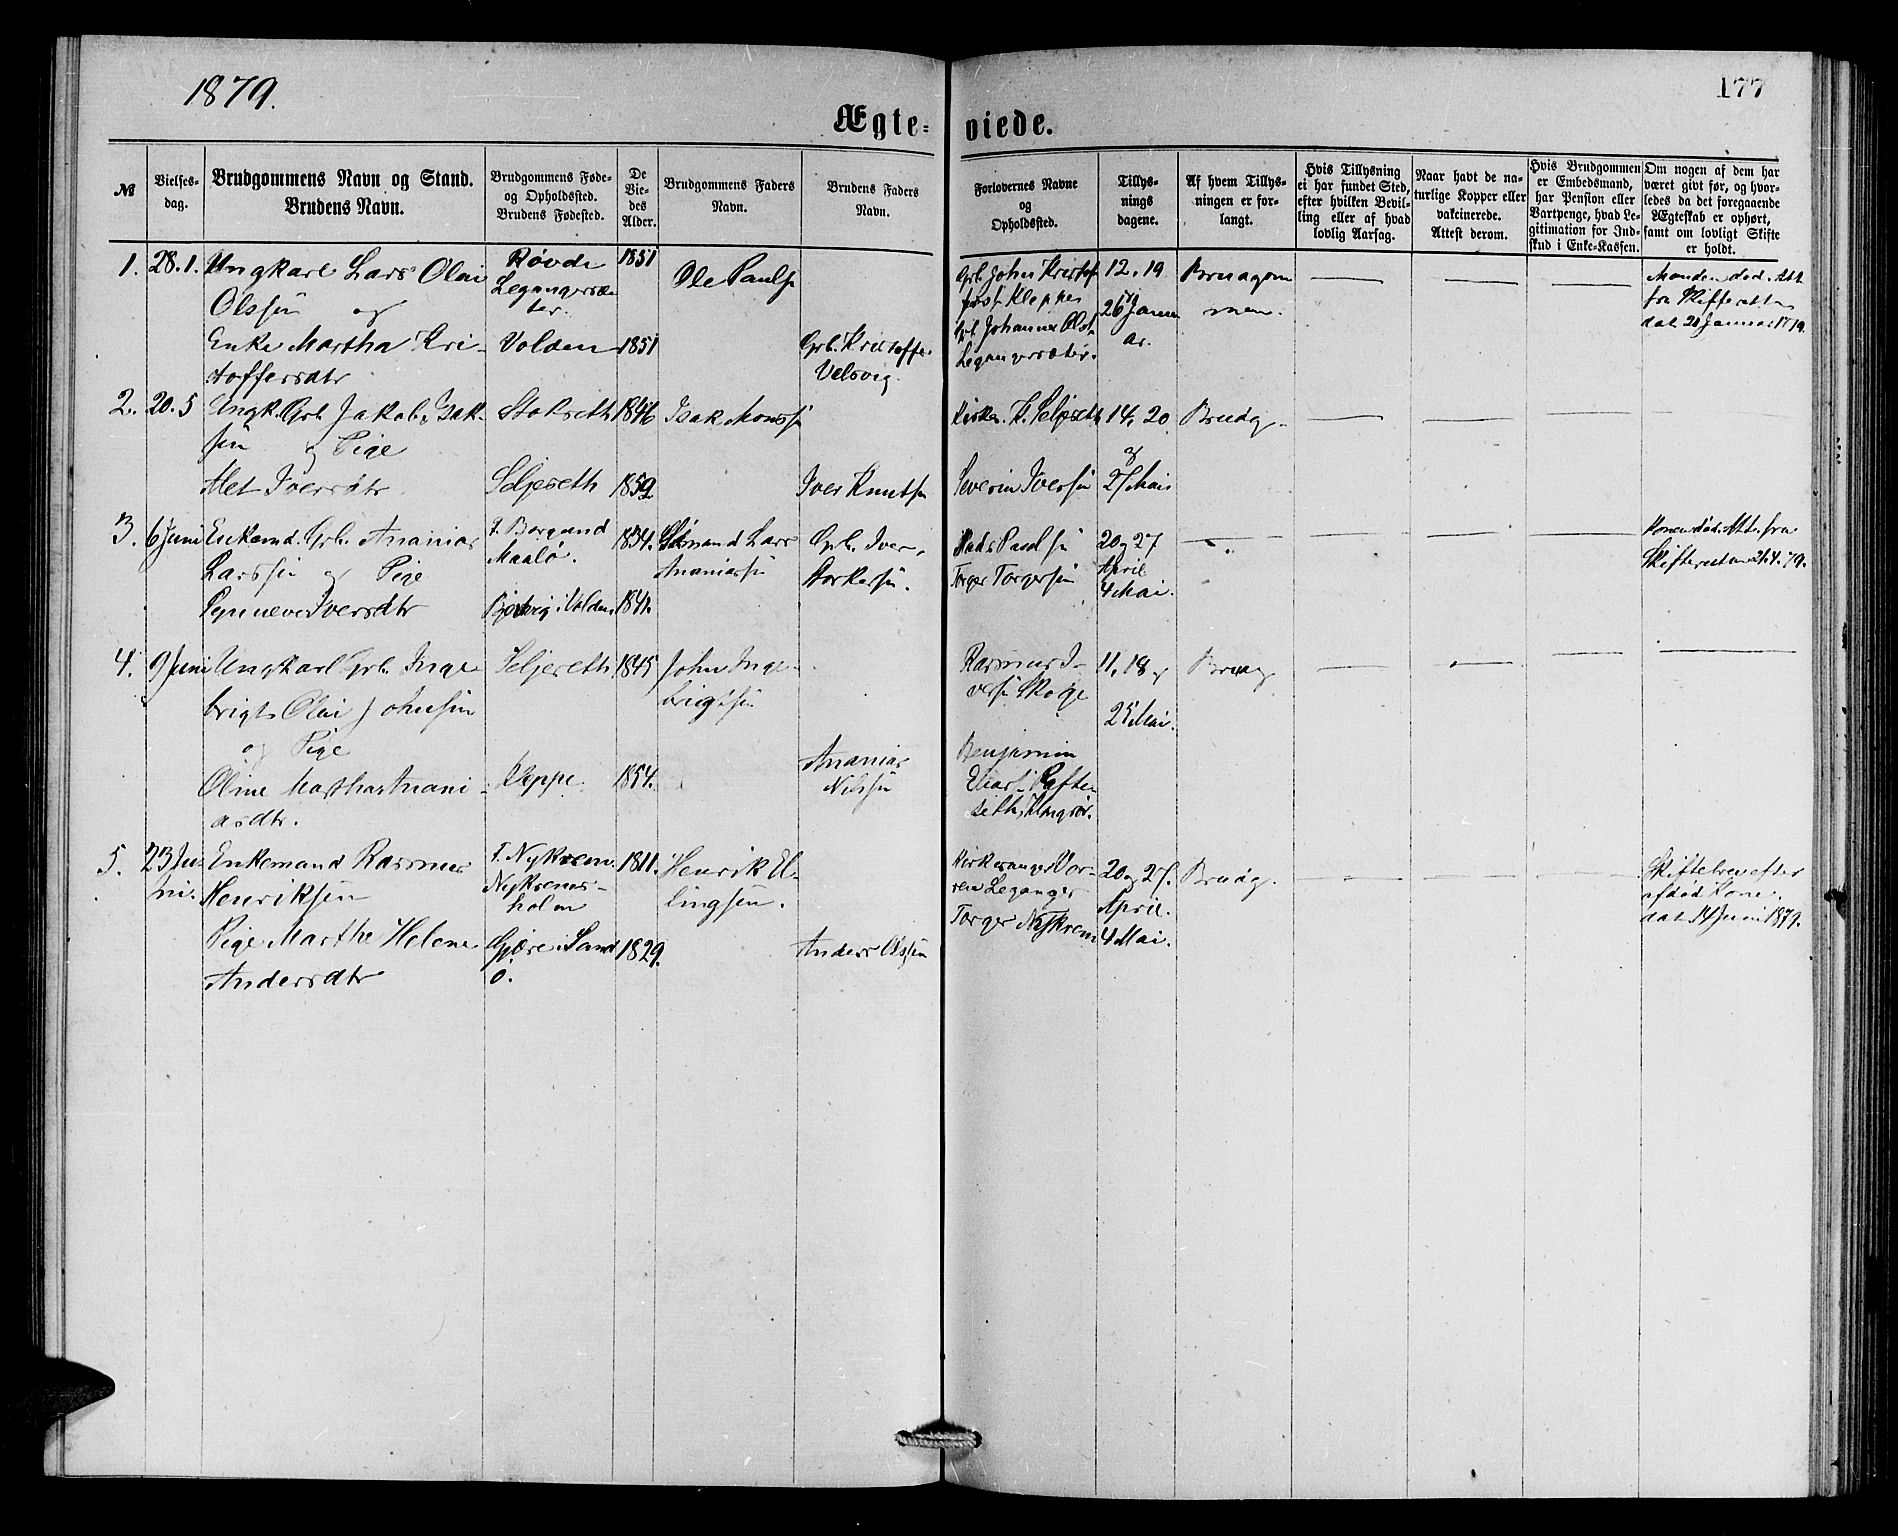 1879.
177
Ægte= viede.
№
Vielses-
dag.
Brudgommens Navn og Stand.
Brudens Navn.
Brudgommens Føde-
og Opholdssted.
Brudens Fødested.
De
Vie-
des
Alder.
Brudgommens Faders
Navn.
Brudens Faders
Navn.
Forlovernes Navne
og
Opholdssted.
Tillys-
nings
dagene.
Af hvem Tillys-
ningen er for-
langt.
Hvis Tillysning
ei har fundet Sted,
efter hvilken Bevil-
ling eller af hvad
lovlig Aarsag.
Naar havt de na-
turlige Kopper eller
vakcinerede.
Attest derom.
Hvis Brudgommen
er Embedsmand,
har Pension eller
Vartpenge, hvad Le-
gitimation for Ind-
skud i Enke-Kassen.
Om nogen af dem har
været givt før, og hvor-
ledes da det foregaaende
Ægteskab er ophørt,
samt om lovligt Skifte
er holdt.
1. 28.1. Ungkarl Lars Olai
Olssen og
Enke Martha Kri-
stoffersdtr
Røvde
Legangersæ-
ter.
Volden
1851
1851
Ole Pauls
Grb. Kristoffer
Velsvig.
Grb. John Kristof
Kleppe
Grb. Johannes Ols
Legangersæter.
12, 19
og
26 Janu
ar.
Brudgom
men.
Manden død. Att.
fra Skifteretten
dat 20 Januar 1879.
2. 20.5 Ungk. Grb. Jakob Isak-
sen og Pige
Alet Iversdtr
Stokseth
Seljeseth
1846
1859
Isak Monss
Iver Knuts
Kirkes. K. Seljeseth
Severin Iversen
14, 20
og
27 Mai
Brudg.
3. 6 Juni Enkemd. Grb. Ananias
Larssen og Pige
Pernneve Iversdtr
F. Borgund
Maalø.
Bjerkvig i Volden
1834.
1841.
Lars
Ananiassen
Grb. Iver
Storkersen.
Mads Paulsen
Torger Torgersen
20 og 27
April
4 Mai.
Konen død. Att. fra
Skifteretten 26.4.79.
4. 9 Juni Ungkarl Grb. Inge
brigt Olai Johnsen
og Pige
Oline Martha Anani-
asdtr.
Seljeseth
Kleppe.
1845
1854.
John Inge-
brigtsen
Ananias
Nilssen
Rasmus I-
versen Skoge
Benjamin
Elias
11, 18 og
25 Mai.
Brudg
5. 23 Ju-
ni.
Enkemand Rasmus
Henriksen
Pige Marthe Helene
Andersdtr
F. Nykrem.
Nykrems-
holm
Gjøre i Sand
ö.
1811.
1829.
Henrik El-
lingsen.
Anders Olssen
Kirkesanger Vor-
ren Leganger
Torger Nykrem
20 og 27.
April.
4 Mai.
Brudg.
Skiftebrev efter
afdød Kone.
dat 14 Juni 1879.